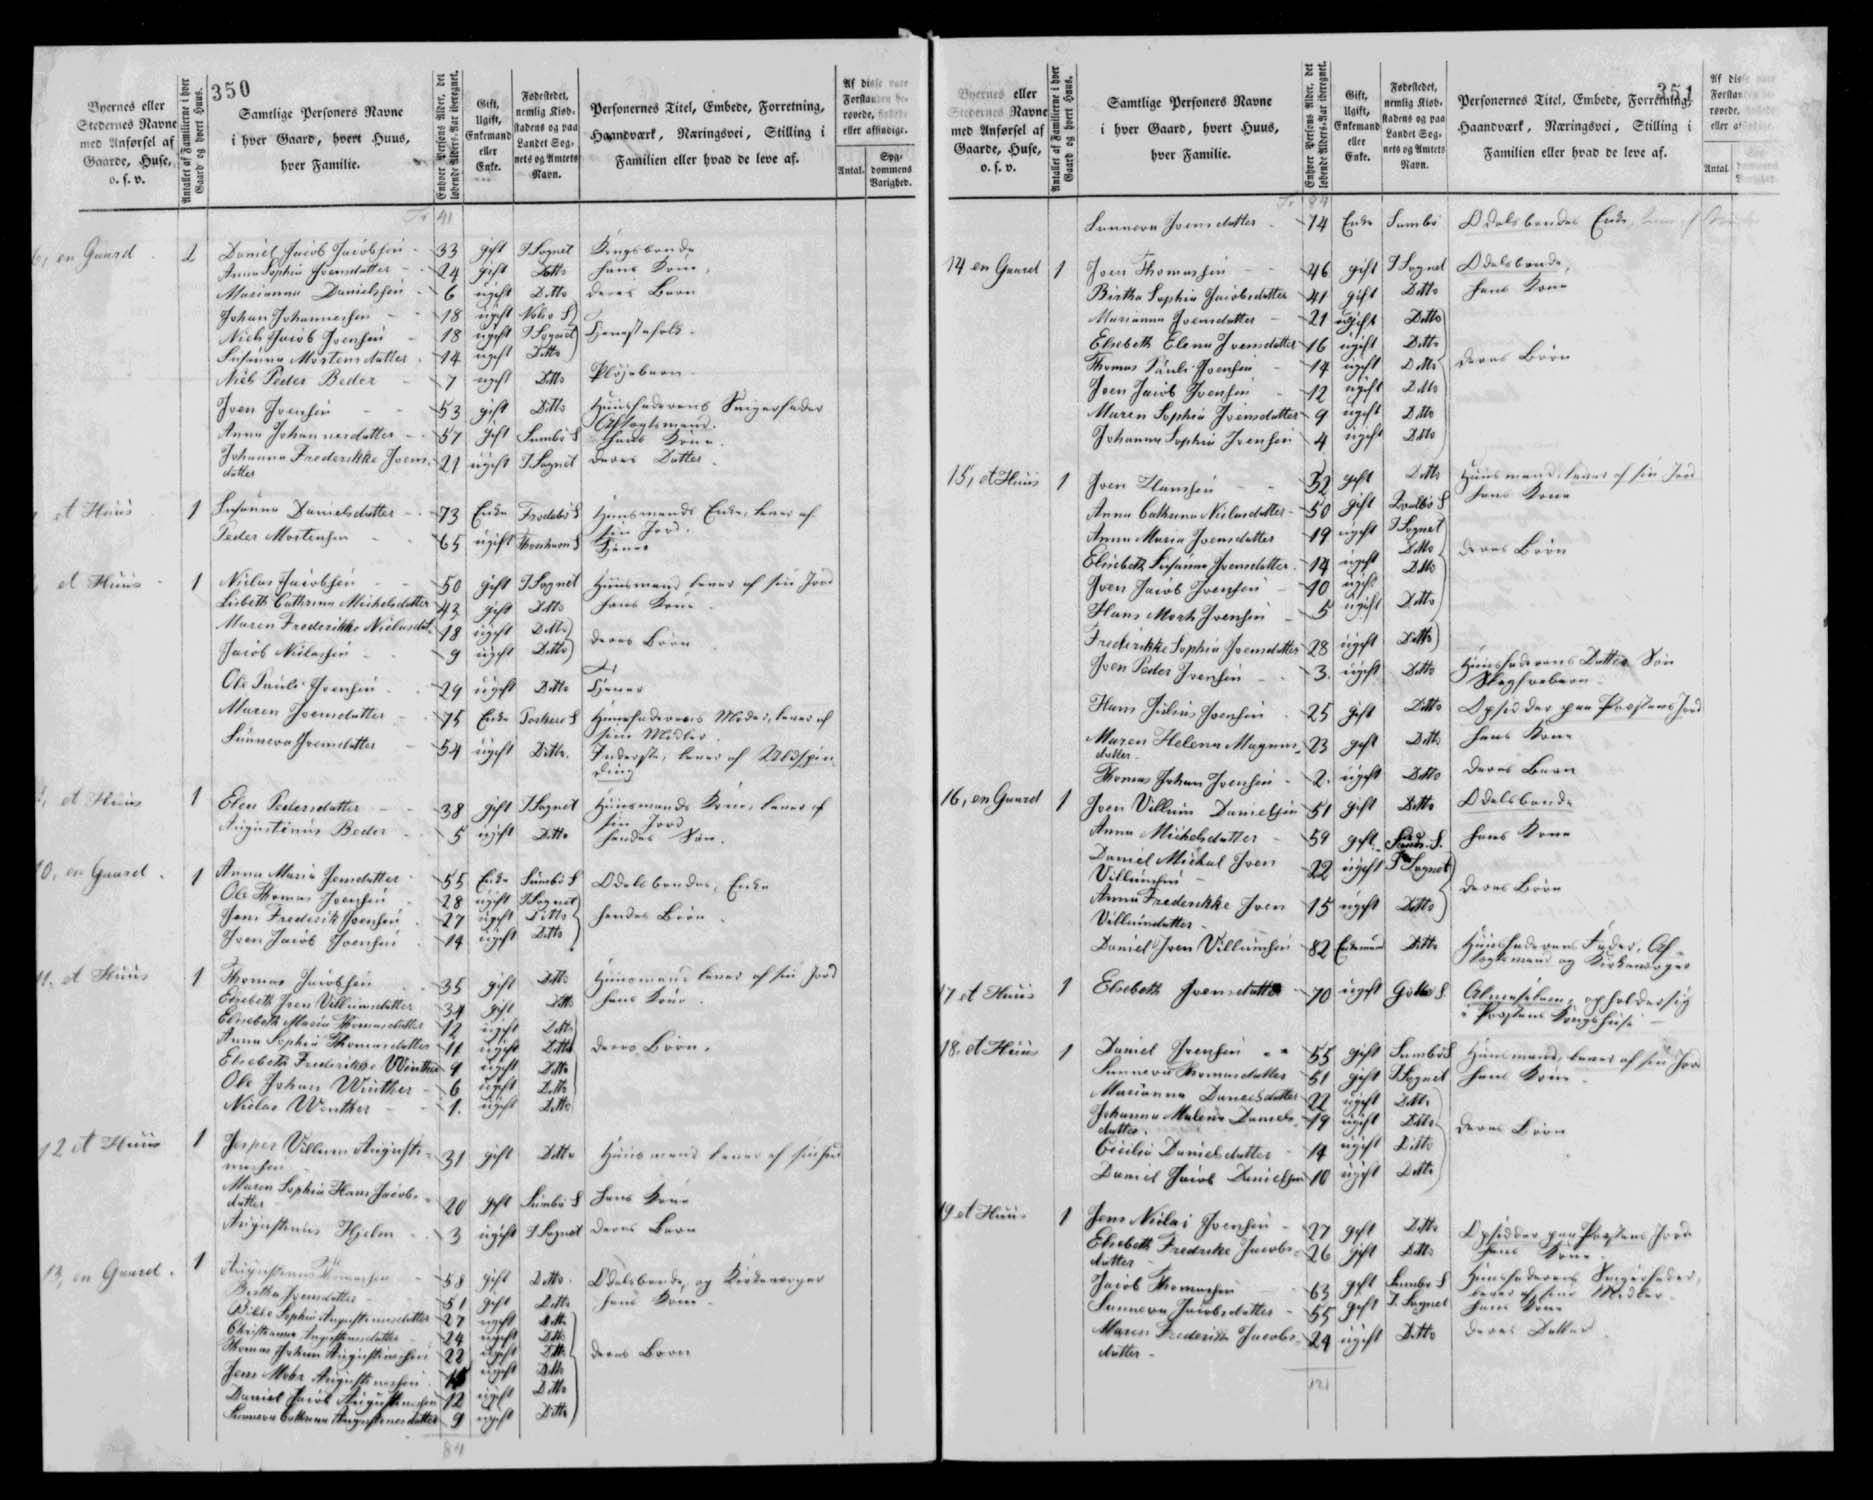 350
Byernes eller
Stedernes Navne
med Anførsel af
Gaarde, Huse,
o. s. v.
Antallet af Familierne i hver
Gaard og hvert Huus.
Samtlige Personers Navne
i hver Gaard, hvert Huus,
hver Familie.
Enhver Persons Alder, det
løbende Alders-Aar iberegnet.
Gift,
Ugift,
Enkemand
eller
Enke.
Fødestedet,
nemlig Kiøb-
stadens og paa
Landet Sog-
nets og Amtets
Navn.
Personernes Titel, Embede, Forretning,
Haandværk, Næringsvei, Stilling i
Familien eller hvad de leve af.
Af disse vare
Forstanden be-
røvede,
eller afsindige.
Antal.
Syg-
dommens
Varighed.
Tr 41
6, en Gaard 2 Daniel Jacob Jacobsen 33 gift I Sognet Kongsbonde
Anna Sophia Joensdatter 24 gift Ditto hans Kone
Marianna Danielsen 6 ugift Ditto deres Barn
Johan Johannesen 18 ugift
Niels Jacob Joensen 18 ugift I Sognet
Susanna Mortensdatter 14 ugift Ditto
Niels Peder Beder 7 ugift Ditto Pleiebarn
Joen Joensen 53 gift Ditto Huusfaderens Svigerfader
Aftægtsmand
Anna Johannesdatter 57 gift Sumbø S hans Kone
Johanna Frederikke Joens- 21 ugift I Sognet deres Datter
datter
et Huus 1 Susanna Danielsdatter 73 Enke Frodebø S Huusmands Enke, lever af
sin Jord.
Peder Mortensen 65 ugift Thorshavn S
et Huus 1 Niclas Jacobsen 50 gift I Sognet Huusmand lever af sin Jord
Lisbeth Cathrina Michelsdatter 43 gift Ditto hans Kone
Maren Frederikke Niclasdat. 18 ugift Ditto
deres Børn
Jacob Niclasen 9 ugift Ditto
Ole Pauli Joensen 29 ugift Ditto
Maren Joensdatter 75 Enke Porkere S Huusfaderens Moder, lever af
sine Midler.
Sunneva Joensdatter 54 ugift Ditto Inderste, lever af Uldspin-
ding
et Huus 1 Elen Pedersdatter 38 gift I Sognet Huusmands Kone, lever af
sin Jord
Augustinus Beder 5 ugift Ditto hendes Søn.
10, en Gaard 1 Anna Maria Jensdatter 55 Enke Sumbø S Odelsbondes Enke
Ole Thomas Joensen 28 ugift I Sognet
Jens Frederik Joensen 27 ugift Ditto hendes Børn
Joen Jacob Joensen 14 ugift Ditto
11, et Huus 1 Thomas Jacobsen 35 gift Ditto Huusmand lever af sin Jord
Elsebeth Joen Villumsdatter 34 gift Ditto hans Kone
Elsebeth Maria Thomasdatter 12 ugift Ditto
Anna Sophia Thomasdatter 11 ugift Ditto deres Børn.
Elsebeth Frederikke Winther 9 ugift Ditto
Ole Johan Winther 6 ugift Ditto
Niclas Winther 1. ugift Ditto
12 et Huus 1 Jesper Villum Augusti- 31 gift Ditto Huusmand lever af sin Jord
nussen
Maren Sophia Hans Jacobs- 20 gift Sumbø S hans Kone
datter
Augustinus Hjelm 3 ugift I Sognet deres Barn
13, en Gaard. 1 Augustinus 58 gift Ditto Odelsbonde og Kirkeværger
Birtha Joensdatter 51 gift Ditto hans Kone
Sophia Augustinusdatter 27 ugift Ditto
Christianna Augustinusdatter 24 ugift Ditto
Thomas Johan Augustinussen 22 ugift Ditto deres Børn
Jens Mohr Augustinussen ugift Ditto
Daniel Jacob Augustinussen 12 ugift Ditto
Sunneva Cathrina Augustinusdatter 9 ugift Ditto
84
351
Byernes eller
Stedernes Navne
med Anførsel af
Gaarde, Huse,
o. s. v.
Antallet af Familierne i hver
Gaard og hvert Huus.
Samtlige Personers Navne
i hver Gaard, hvert Huus,
hver Familie.
Enhver Persons Alder, det
løbende Alders-Aar iberegnet.
Gift,
Ugift,
Enkemand
eller
Enke.
Fødestedet,
nemlig Kiøb-
stadens og paa
Landet Sog-
nets og Amtets
Navn.
Personernes Titel, Embede, Forretning,
Haandværk, Næringsvei, Stilling i
Familien eller hvad de leve af.
Af disse vare
Forstan
røvede,
eller af
Antal
Tr 84
Sunneva Joensdatter 74 Enke Sumbø Odelsbondes Enke
14 en Gaard 1 Joen Thomassen 46 gift I Sognet Odelsbonde
Birtha Sophia Jacobsdatter 41 gift Ditto hans Kone
Marianna Joensdatter 21 ugift Ditto
Elsebeth Elena Joensdatter 16 ugift Ditto
Thomas Pauli Joensen 14 ugift Ditto deres Børn
Joen Jacob Joensen 12 ugift Ditto
Maren Sophia Joensdatter 9 ugift Ditto
Johanna Sophia Joensen 4 ugift Ditto
15, et Huus 1 Joen Hansen 52 gift Ditto Huusmand lever af sin Jord
Anna Cathrina Niclasdatter 50 gift Qvalbø S hans Kone
Anna Maria Joensdatter 19 ugift I Sognet
Elsebeth Susanna Joensdatter 14 ugift Ditto deres Børn
Joen Jacob Joensen 10 ugift Ditto
Hans Morts Joensen 5 ugift Ditto
Frederikke Sophia Joensdatter 28 ugift Ditto
Joen Peder Joensen 3. ugift Ditto Huusfaderens Datter Søn
Slegfredbarn
Hans Julius Joensen 25 gift Ditto Opsidder paa Præstens Jord
Maren Helena Magnus- 23 gift Ditto hans Kone
datter
Thomas Johan Joensen 2. ugift Ditto deres Barn
16, en Gaard 1 Joen Villum Danielsen 51 gift Ditto Odelsbonde
Anna Michelsdatter 59 gift Sand. S. hans Kone
Daniel Michal Joen 22 ugift I Sognet
Villumsen
deres Børn
Anna Frederikke Joen 15 ugift Ditto
Villumsdatter
Daniel Joen Villumsen 82 Enkemand Ditto Huusfaderens Fader, Af-
tægtsmand og Kirkeværger
17 et Huus 1 Elsebeth Joensdatter 70 ugift Gøthe S Almisselem, opholder sig
i Præstens Kongshuse
18. et Huus 1 Daniel Joensen 55 gift Sumbø S Huusmand, lever af sin Jord
Sunneva Thomasdatter 51 gift I Sognet hans Kone
Marianna Danielsdatter 22 ugift Ditto
Johanna Malena Daniels- 19 ugift Ditto
datter.
deres Børn
Cicilia Danielsdatter 14 ugift Ditto
Daniel Jacob Danielsen 10 ugift Ditto
19 et Huus 1 Jens Niclai Joensen 27 gift Ditto Opsidder paa Præstens Jord
Elsebeth Fredrike Jacobs- 26 gift Ditto hans Kone
datter
Jacob Thomassen 63 gift Sumbø S Huusfaderens Svigerfader,
lever af sine Midler
Sunneva Jacobsdatter 55 gift I Sognet hans Kone
Maren Frederikke Jacobs- 24 ugift Ditto deres Datter
datter
121